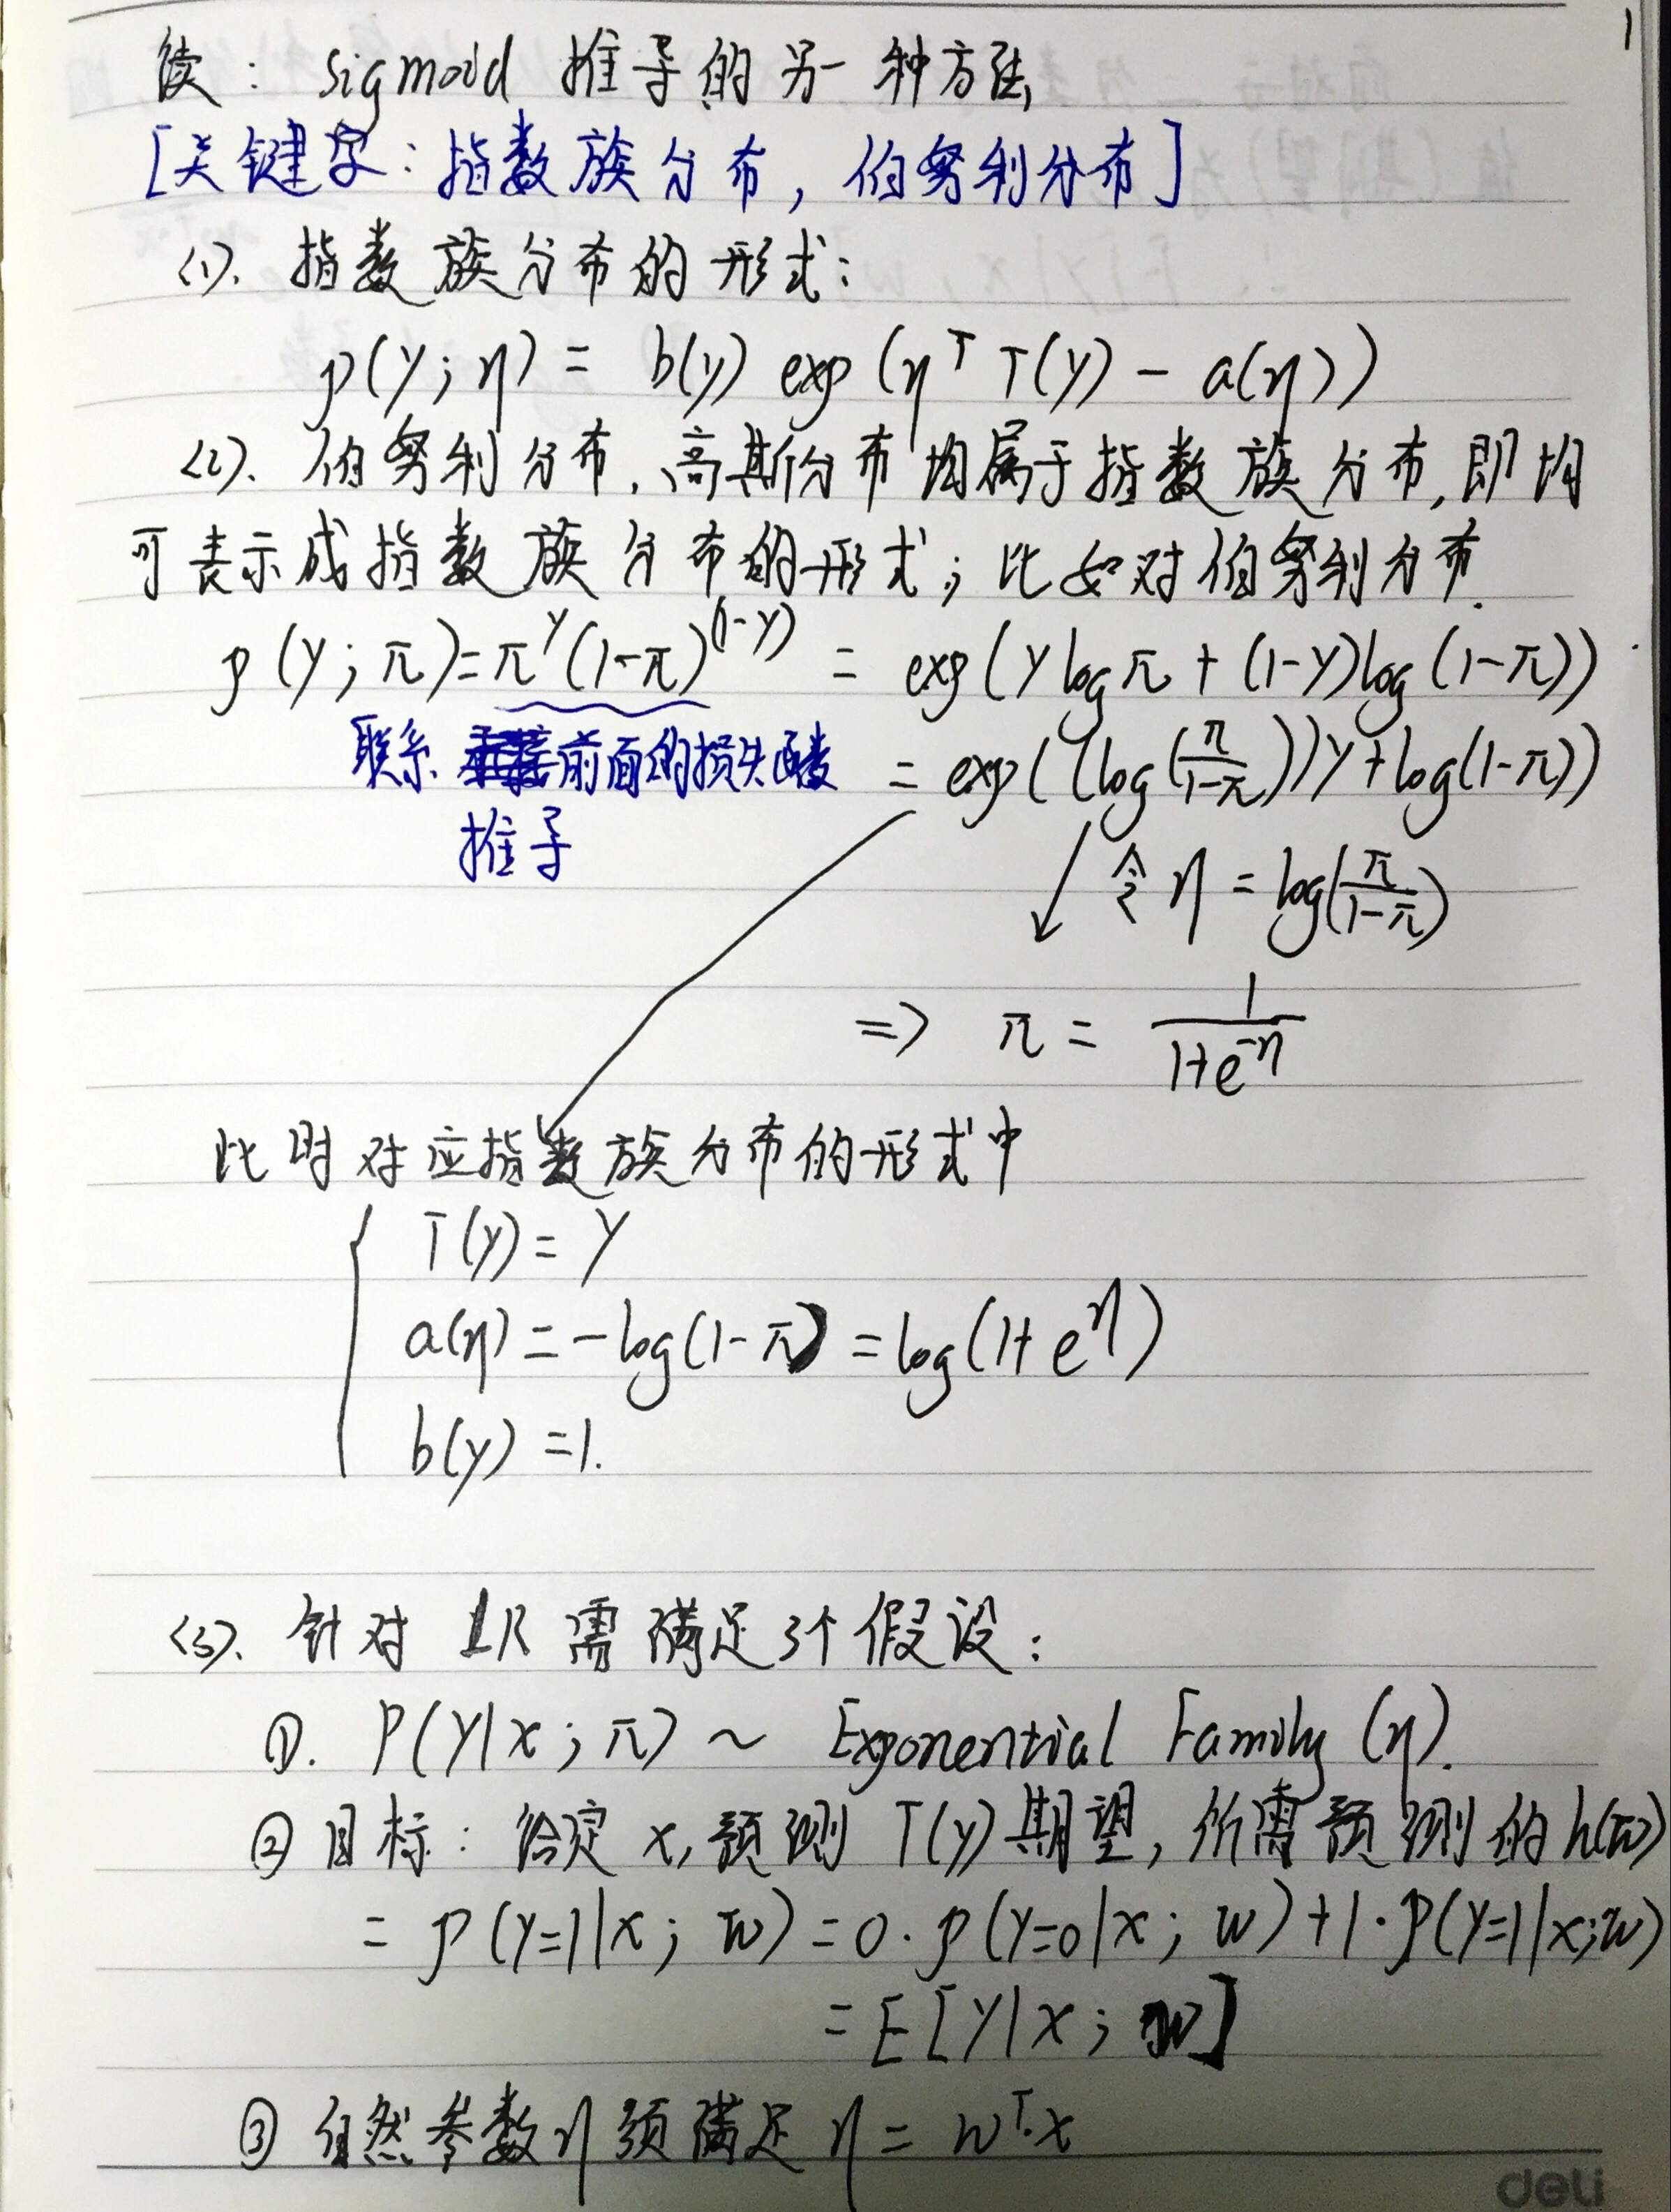 1
续：sigmoid 推导的另一种方法
[关键字：指数族分布，伯努利分布]
<1>. 指数族分布的形式：
p(y;η) = b(y) exp(η^T T(y) - a(η))
<2>. 伯努利分布、高斯分布均属于指数族分布,即均
可表示成指数族分布的形式；比如对伯努利分布.
p(y;π)=π^y(1-π)^(1-y) = exp(y log π + (1-y)log(1-π))
联系 前面的损失函数 = exp((log(π/(1-π)))y+log(1-π))
推导
令 η = log(π/(1-π))
=> π = 1/(1+e^-η)
此时对应指数族分布的形式中
T(y) = y
a(η) = -log(1-π) = log(1+e^η)
b(y) = 1.
<3>. 针对 LR 需满足3个假设：
①. P(y|x;π) ~ Exponential Family (η).
② 目标：给定 x, 预测 T(y) 期望, 所需预测的 h(w)
= p(y=1|x; w) = 0·p(y=0|x; w)+1·p(y=1|x;w)
= E[y|x; w]
③ 自然参数η须满足 η = w^T·x
deli